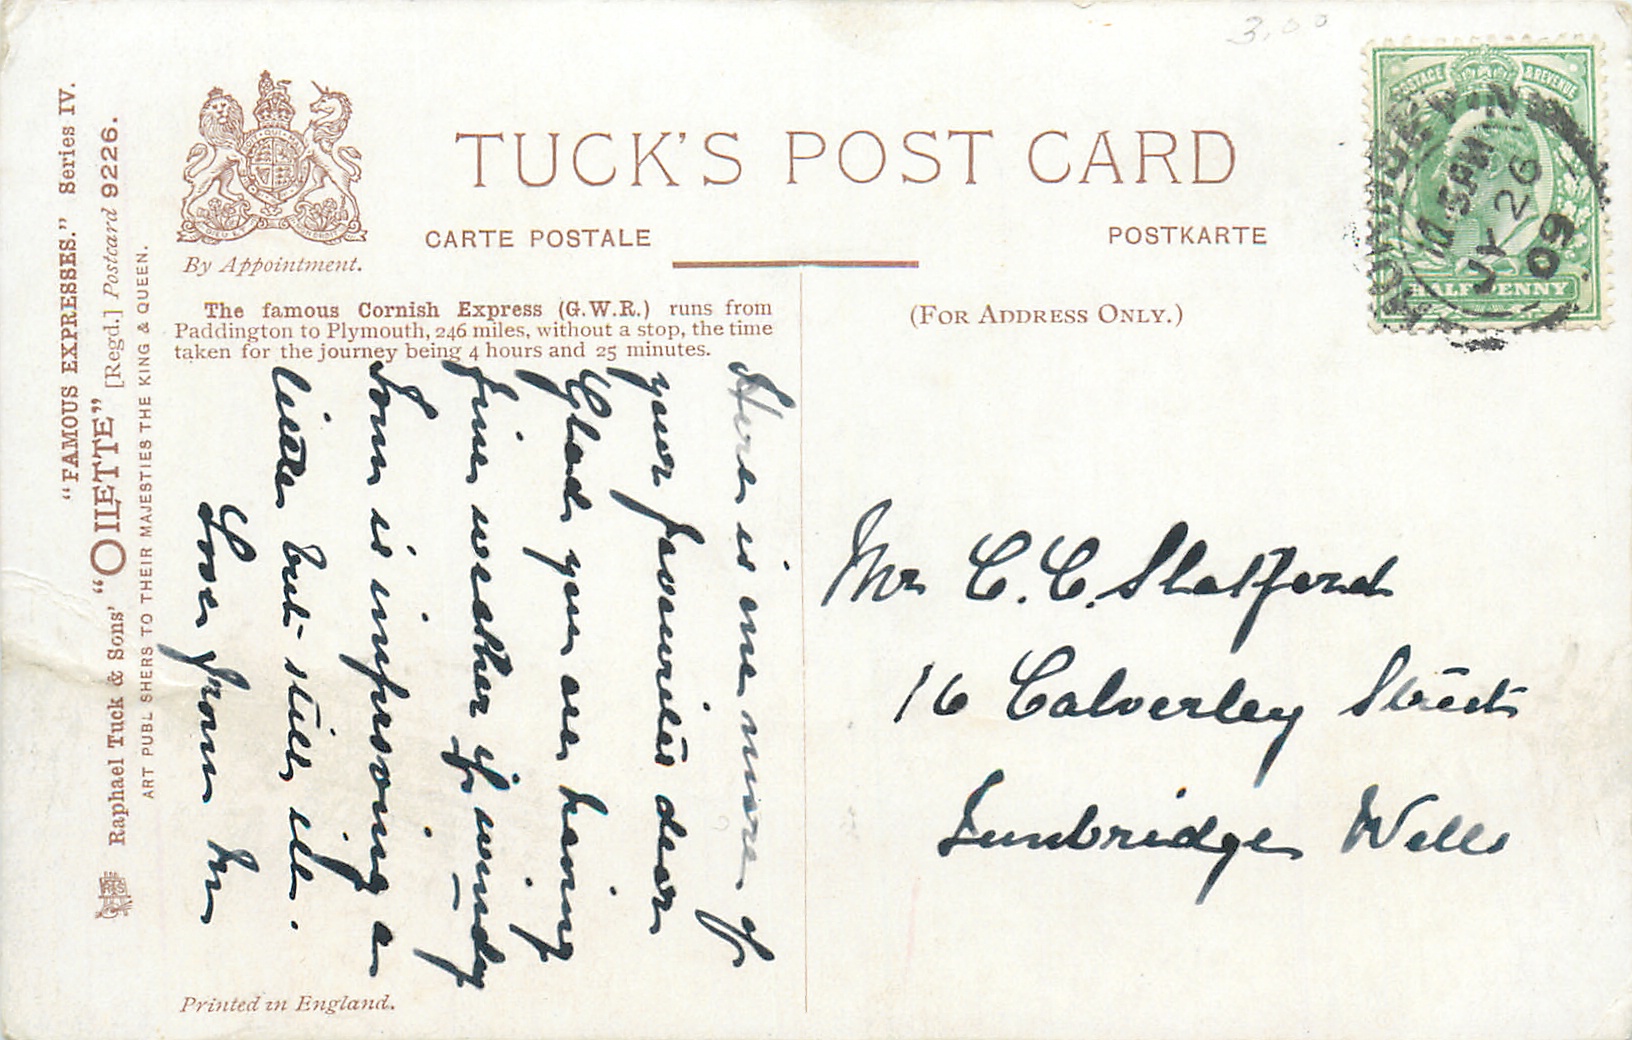 3.00
"FAMOUS EXPRESSES." Series IV.
Raphael Tuck & Sons' "OILETTE" [Regd.] Postcard 9226.
ART PUBLISHERS TO THEIR MAJESTIES THE KING & QUEEN.
By Appointment.
TUCK'S POST CARD
CARTE POSTALE
POSTKARTE
The famous Cornish Express (G.W.R.) runs from
Paddington to Plymouth, 246 miles, without a stop, the time
taken for the journey being 4 hours and 25 minutes.
(FOR ADDRESS ONLY.)
POSTAGE & REVENUE
HALFPENNY
5 PM
JY 26
09
Here is one more of
your favourites dear
Glad you are having
finer weather if windy
Tom is improving a
little but still ill.
Love from
Mr C. C. Slatford
16 Calverley Street
Tunbridge Wells
Printed in England.